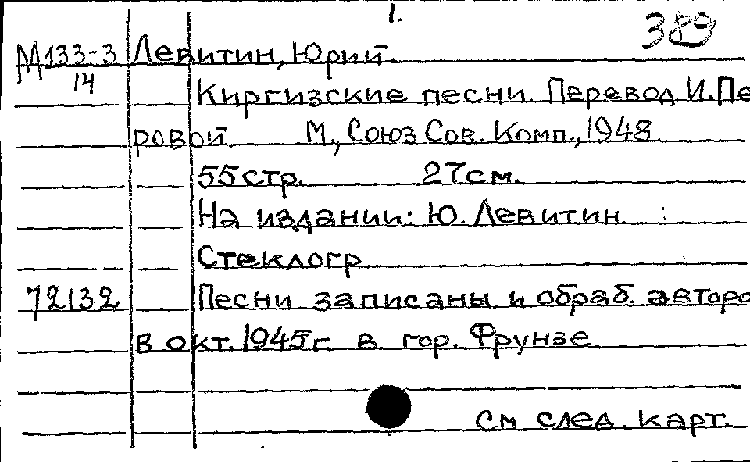 1.
389
М133-3 Левитин, Юрий.
14
Киргизские песни. Перевод И. Пе
ровой. М., Союз Сов. Комп., 1948.
55 стр. 27 см.
На издании: Ю. Левитин :
Стеклогр
72132 Песни записаны и обраб. авторо
в окт. 1945 г. в гор. Фрунзе
См след. карт.